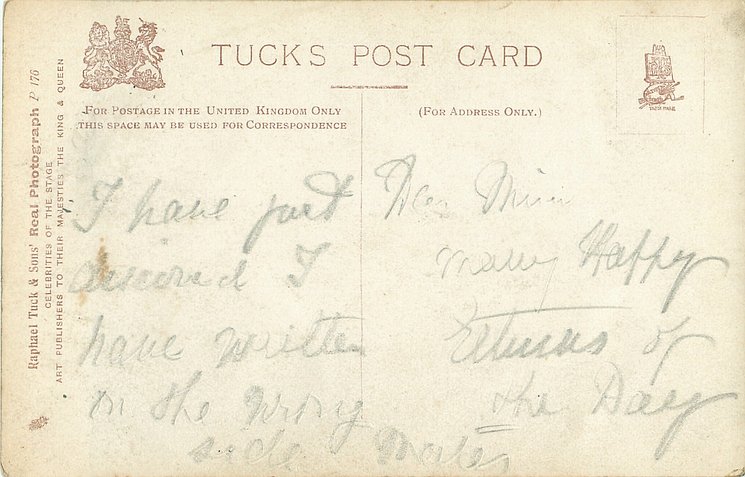 TUCK'S POST CARD
FOR POSTAGE IN THE UNITED KINGDOM ONLY
THIS SPACE MAY BE USED FOR CORRESPONDENCE
(FOR ADDRESS ONLY.)
Raphael Tuck & Sons' Real Photograph P 176
CELEBRITIES OF THE STAGE
ART PUBLISHERS TO THEIR MAJESTIES THE KING & QUEEN
I have just
I
have written
on the wrong
side
Dear
many Happy
of
the Day